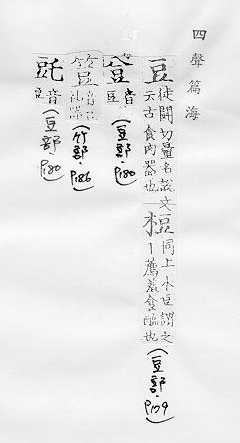 四聲篇海
豆 徒鬭切量名說文云古食肉器也 梪 同上木豆謂之丨薦羞食醢也 (豆部·P179)
音豆 (豆部·P180)
豆 (竹部·P186)
音豆 (豆部·P180)